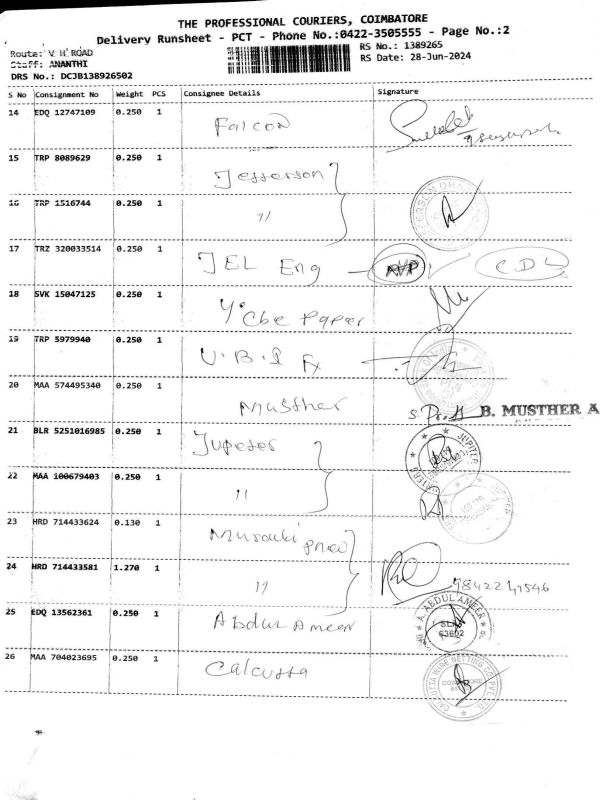 THE PROFESSIONAL COURIERS, COIMBATORE
Delivery Runsheet - PCT - Phone No.:0422-3505555 - Page No.:2
Route: V H ROAD
RS No.: 1389265
Staff: ANANTHI
RS Date: 28-Jun-2024
DRS No.: DCJB138926502
S No Consignment No Weight PCS Consignee Details Signature
14 EDQ 12747109 0.250 1 Falcon
15 TRP 8089629 0.250 1 Jefferson
16 TRP 1516744 0.250 1 "
17 TRZ 320033514 0.250 1 JEL Eng CDL
18 SVK 15047125 0.250 1 Y. Cbe Paper
19 TRP 5979940 0.250 1 U.B.I Fx
20 MAA 574495340 0.250 1 Musther B. MUSTHER A
21 BLR 5251016985 0.250 1 Jupeter JUPITER
22 MAA 100679403 0.250 1 "
23 HRD 714433624 0.130 1
24 HRD 714433581 1.270 1 "
25 EDQ 13562361 0.250 1 Abdul Ameer A. ABDUL AMEER
26 MAA 704023695 0.250 1 Calcutta CALCUTTA WIRE NETTING CO. PVT. LTD.